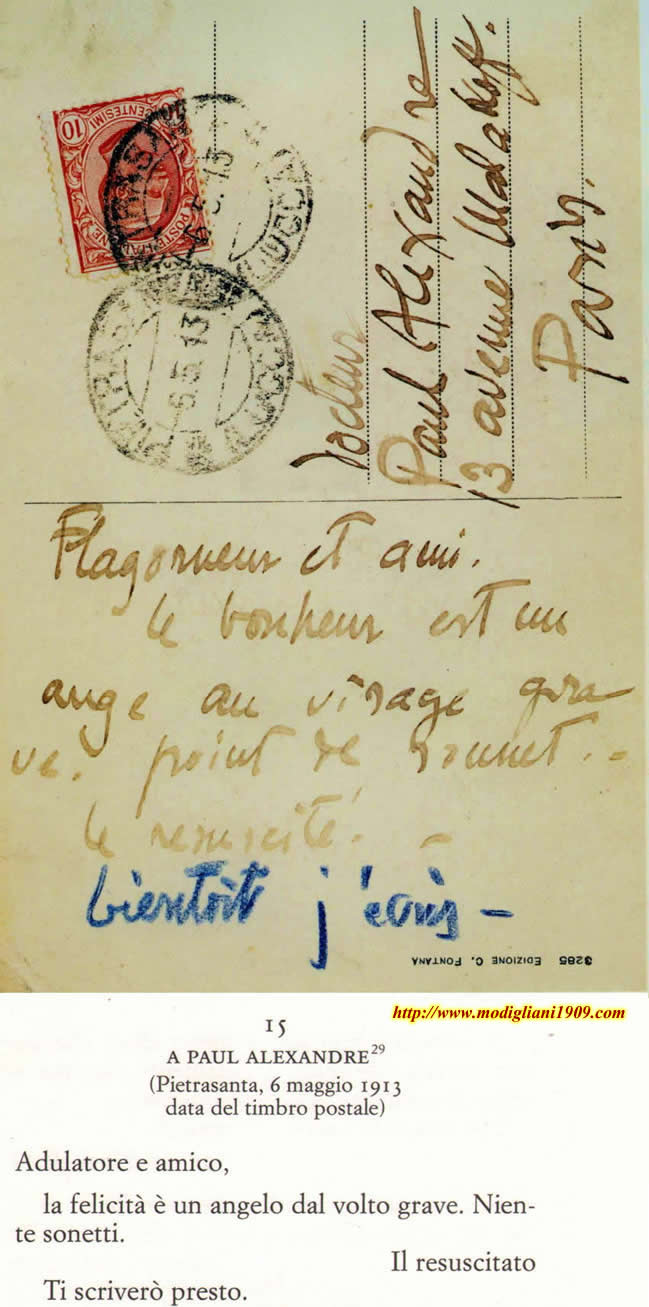 10
CENTESIMI
POSTE ITALIANE
PIETRASANTA
(LUCCA)
6.5.13
PIETRASANTA
6.5.13
Docteur
Paul Alexandre
13 avenue Malakoff.
Paris.
Flagorneur et ami.
le bonheur est un
ange au visage gra
ve. point de sonnet. -
le resuscité! -
bientoit j'écris -
3285 EDIZIONE C. FONTANA
http://www.modigliani1909.com
15
A PAUL ALEXANDRE29
(Pietrasanta, 6 maggio 1913
data del timbro postale)
Adulatore e amico,
la felicità è un angelo dal volto grave. Nien-
te sonetti.
Il resuscitato
Ti scriverò presto.